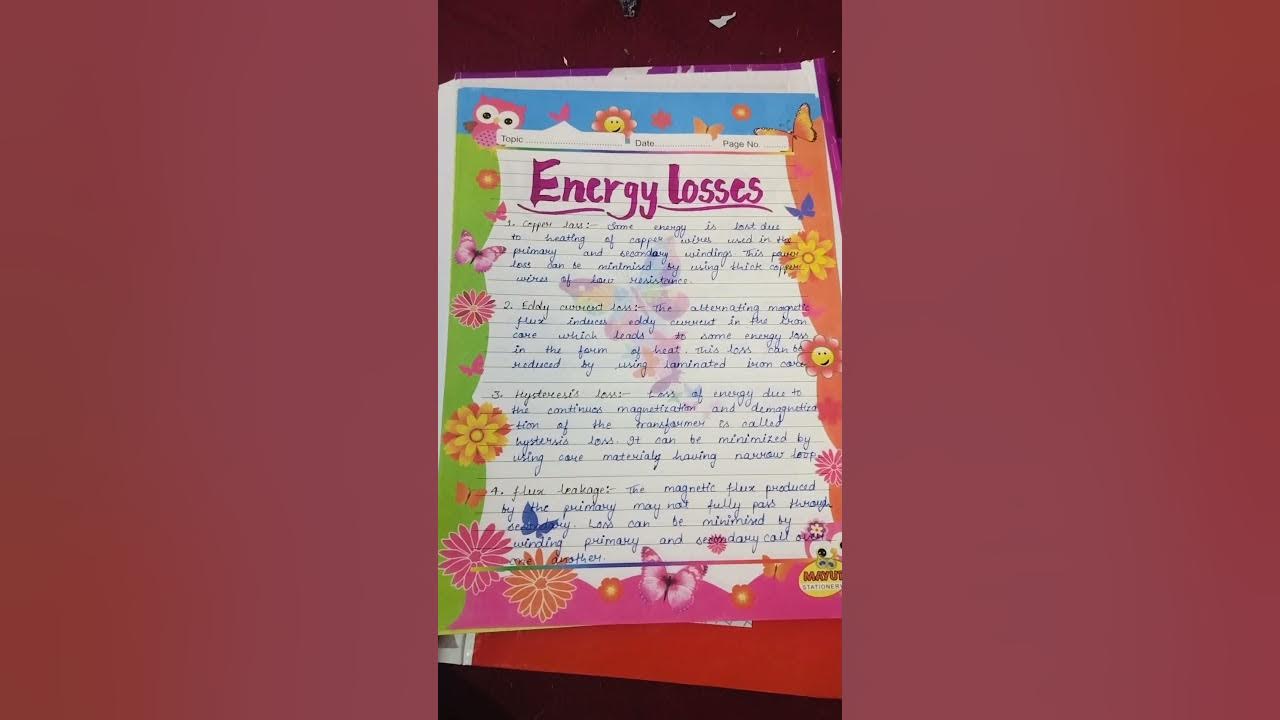 Topic
Date
Page No.
Energy losses
1. Copper loss:- Some energy is lost due
to heating of copper wires used in the
primary and secondary windings This power
loss can be minimised by using thick copper
wires of low resistance.
2. Eddy current loss:- The alternating magnetic
flux induces eddy current in the iron
core which leads to some energy loss
in the form of heat. This loss can be
reduced by using laminated iron core.
3. Hysteresis loss:- Loss of energy due to
the continuos magnetization and demagnetiza
-tion of the transformer is called
hystersis loss. It can be minimized by
using core materials having narrow loop
4. flux leakage:- The magnetic flux produced
by the primary may not fully pass through
secondary. Loss can be minimised by
winding primary and secondary call over
one another.
MAYUR
STATIONERY